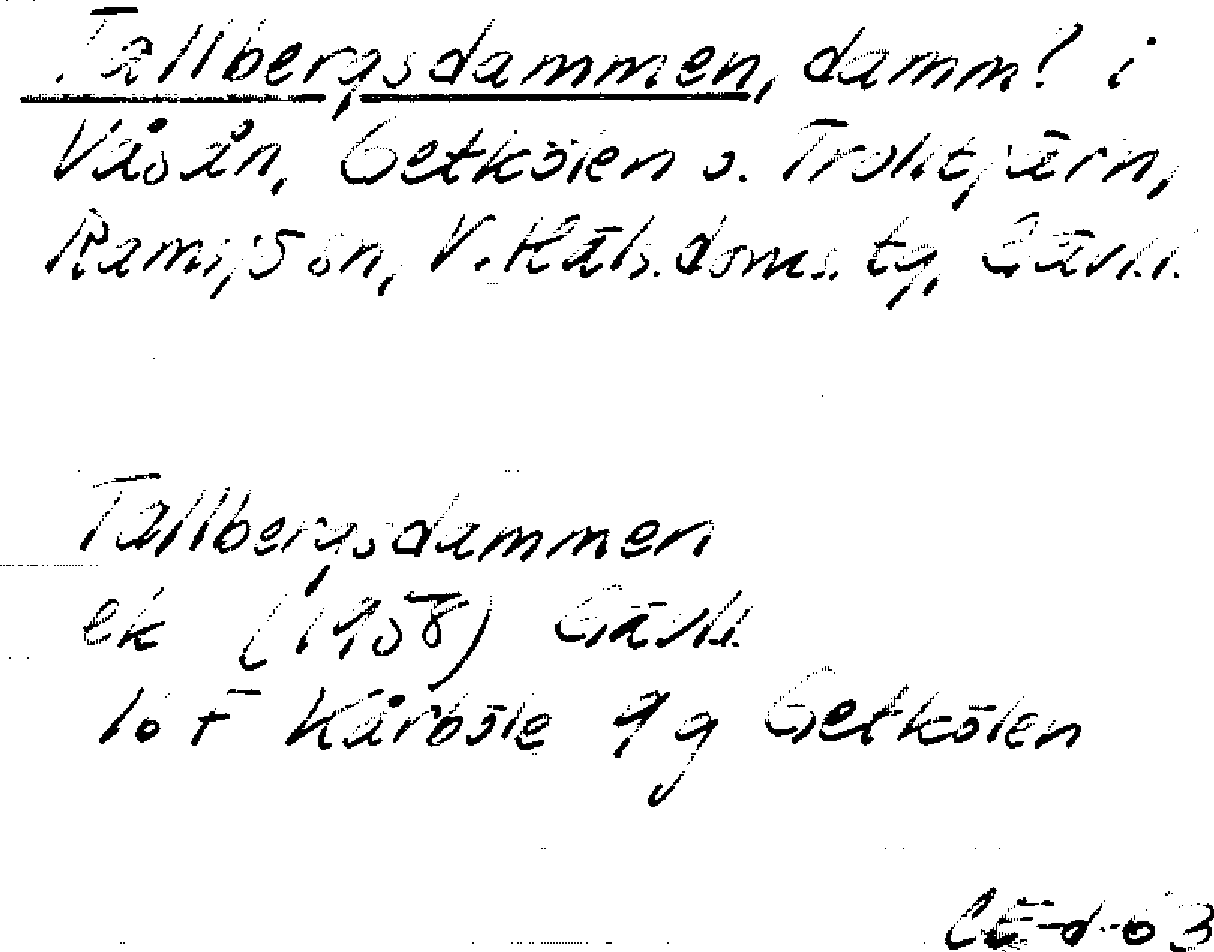 Tallbergsdammen, damm? i
Våsån, Getkölen o. Trolltjärn,
Ramsjö sn, V. Häls. doms. tg, Gävl.
Tallbergsdammen
ek (1958) Gävl.
16 F Kårböle 9 g Getkölen
CE-d-63